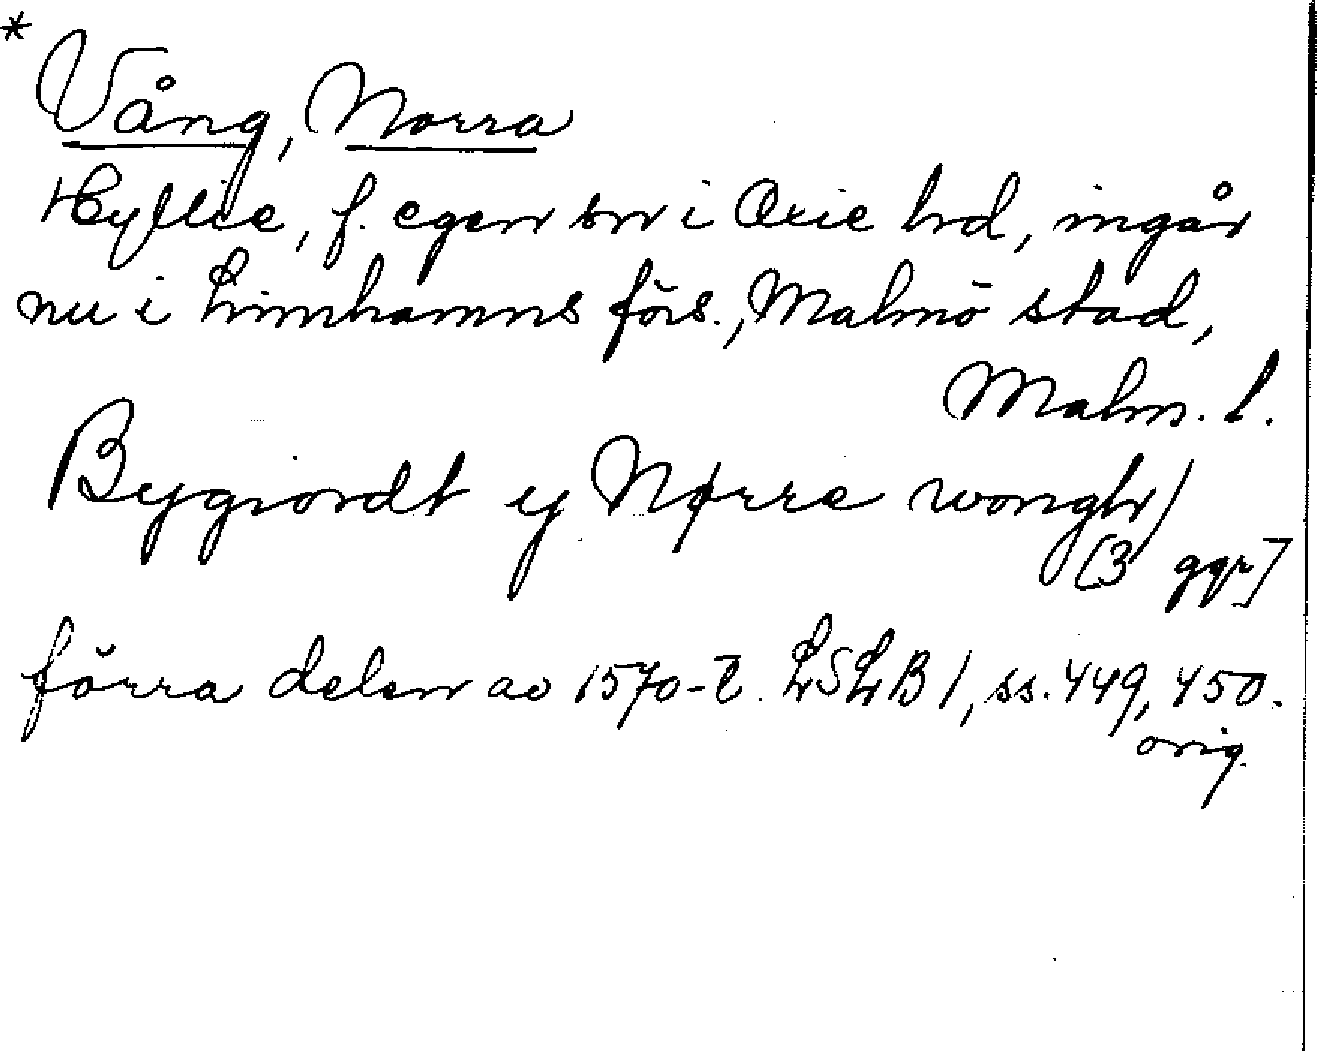 *
Vång, Norra
Hyllie, f. egen sn i Oxie hd, ingår
nu i Limhamns förs., Malmö stad,
Malm. l.
Bygiordt ij Nørre wongh)
[3 ggr]
förra delen av 1570-t. LSLB 1, ss. 449, 450.
orig.